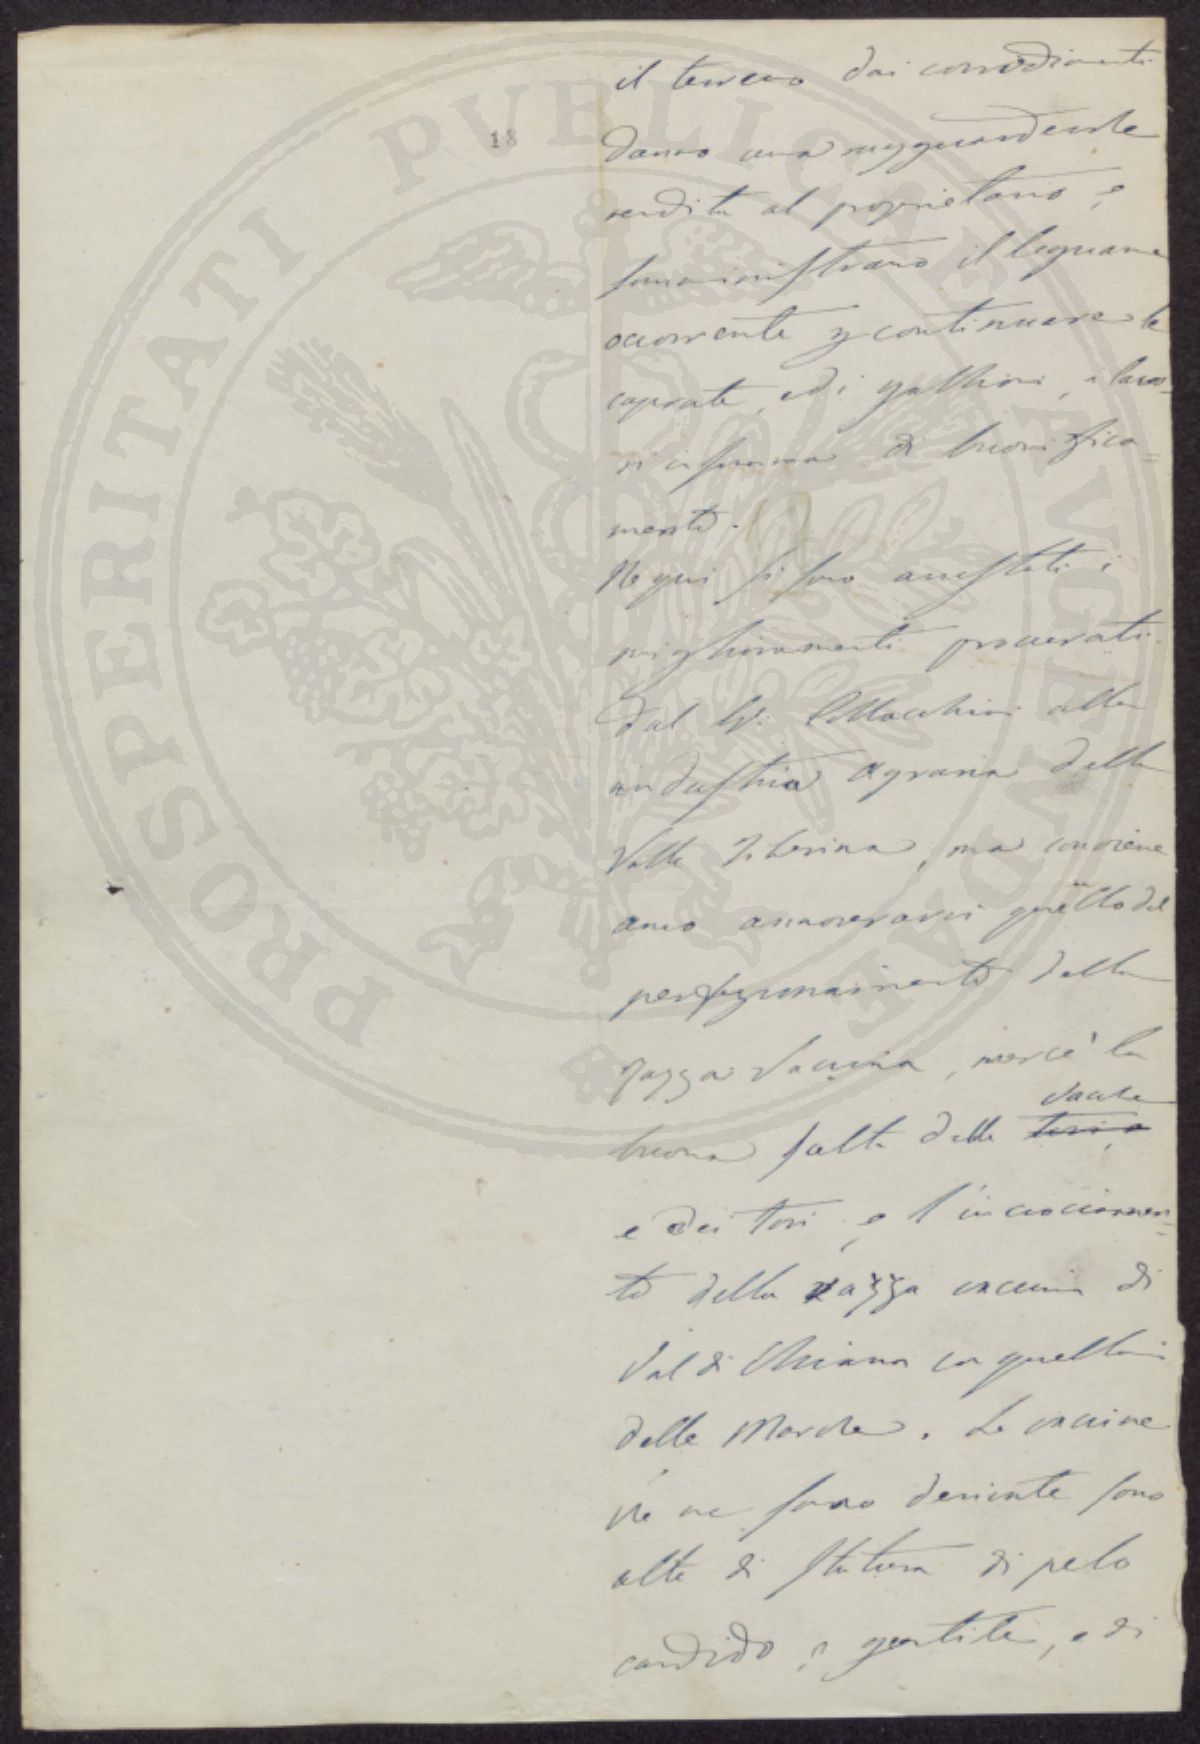 18
il terreno dai corrodimenti
danno una ragguardevole
rendita al proprietario, e
somministrano il legname
occorrente p continuare le
caprate, ed i gabbioni, i lavo-
ri in somma di buonifica=
mento.
Ne qui si sono arrestati i
miglioramenti procurati
dal Collacchioni alla
industria Agraria della
Valle Tiberina, ma conviene
anco annoverarvi quello del
perfezionamento della
razza vaccina, mercè la
buona scelta delle vacche
e dei tori, e l'incrociamen=
to della razza vaccina di
Val di Chiana con quella
delle Marche. Le vaccine
che ne sono derivate sono
alte di statura di pelo
candido, e gentile, e di
PROSPERITATI PVBLICAE AVGENDAE